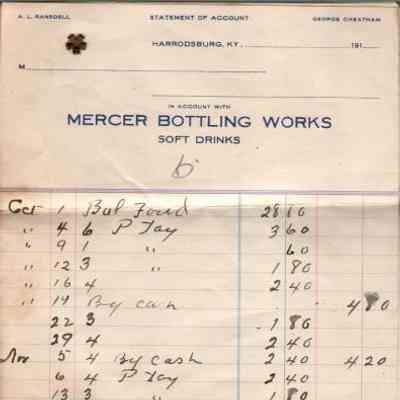 A. L. RANSDELL STATEMENT OF ACCOUNT GEORGE CHEATHAM
HARRODSBURG, KY. 191
M
IN ACCOUNT WITH
MERCER BOTTLING WORKS
SOFT DRINKS
6
Oct 1 Bal Forwd 28 80
" 4 6 P Jay 3 60
" 9 1 " 60
" 12 3 " 1 80
" 16 4 2 40
" 19 By cash 4 80
22 3 1 80
29 4 2 40
Nov 5 4 By cash 2 40 4 20
6 4 P Jay 2 40
13 3 " 1 80